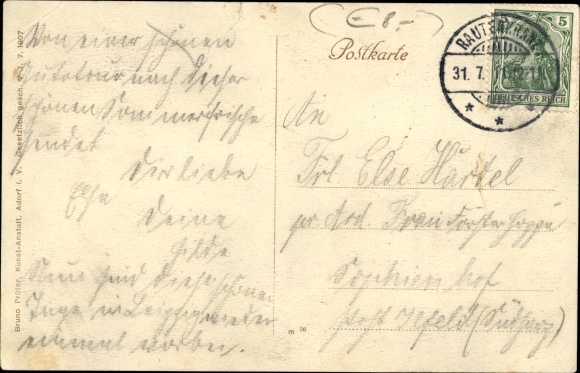 Von einer schönen
Autotour nach dieser
schönen Sommerfrische
sendet
Dir liebe
Else
Deine
Hilde
Nun sind diese schönen
Tage in Leipzig wieder
einmal vorbei.
Bruno Prüfer, Kunst-Anstalt, Adorf i. V. Gesetzlich gesch. 7. 1907
(E 1.-)
Postkarte
RAUTENKRANZ
31.7.11.
5
DEUTSCHES REICH
An
Frl. Else Härtel
pr. Adr. Frau Förster
Sophienhof
Post Ilfeld (Südharz)
m 96